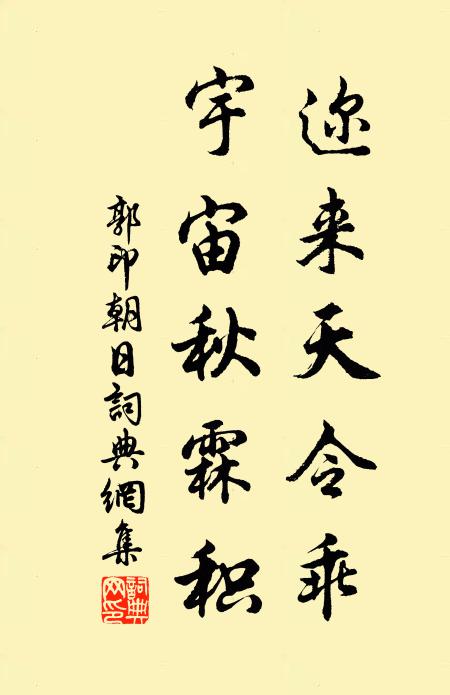 迩来天令乖
宇宙秋霖积
郭印朝日詞典網集
詞典网印